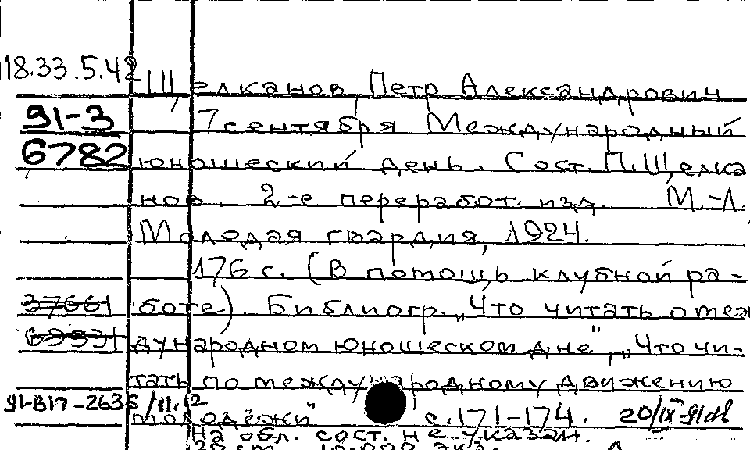 18.33.5.42
Щелканов, Петр Александрович
91-3
7 сентября Международный
6782
юношеский день. Сост. П. Щелка
нов. 2-е переработ. изд. М.-Л.
Молодая гвардия, 1924.
176 с. (В помощь клубной ра-
37661
боте). Библиогр. „Что читать о меж
дународном юношеском дне", „Что чи-
тать по международному движению
91-В17-2635/11.12
молодёжи" с. 171-174. 20/IX-91
На обл. сост. не указан.
10.000 экз.